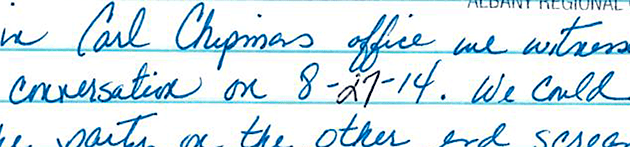 ALBANY REGIONAL
in Carl Chipmans office we witness
conversation on 8-27-14. We could
the party on the other end scream